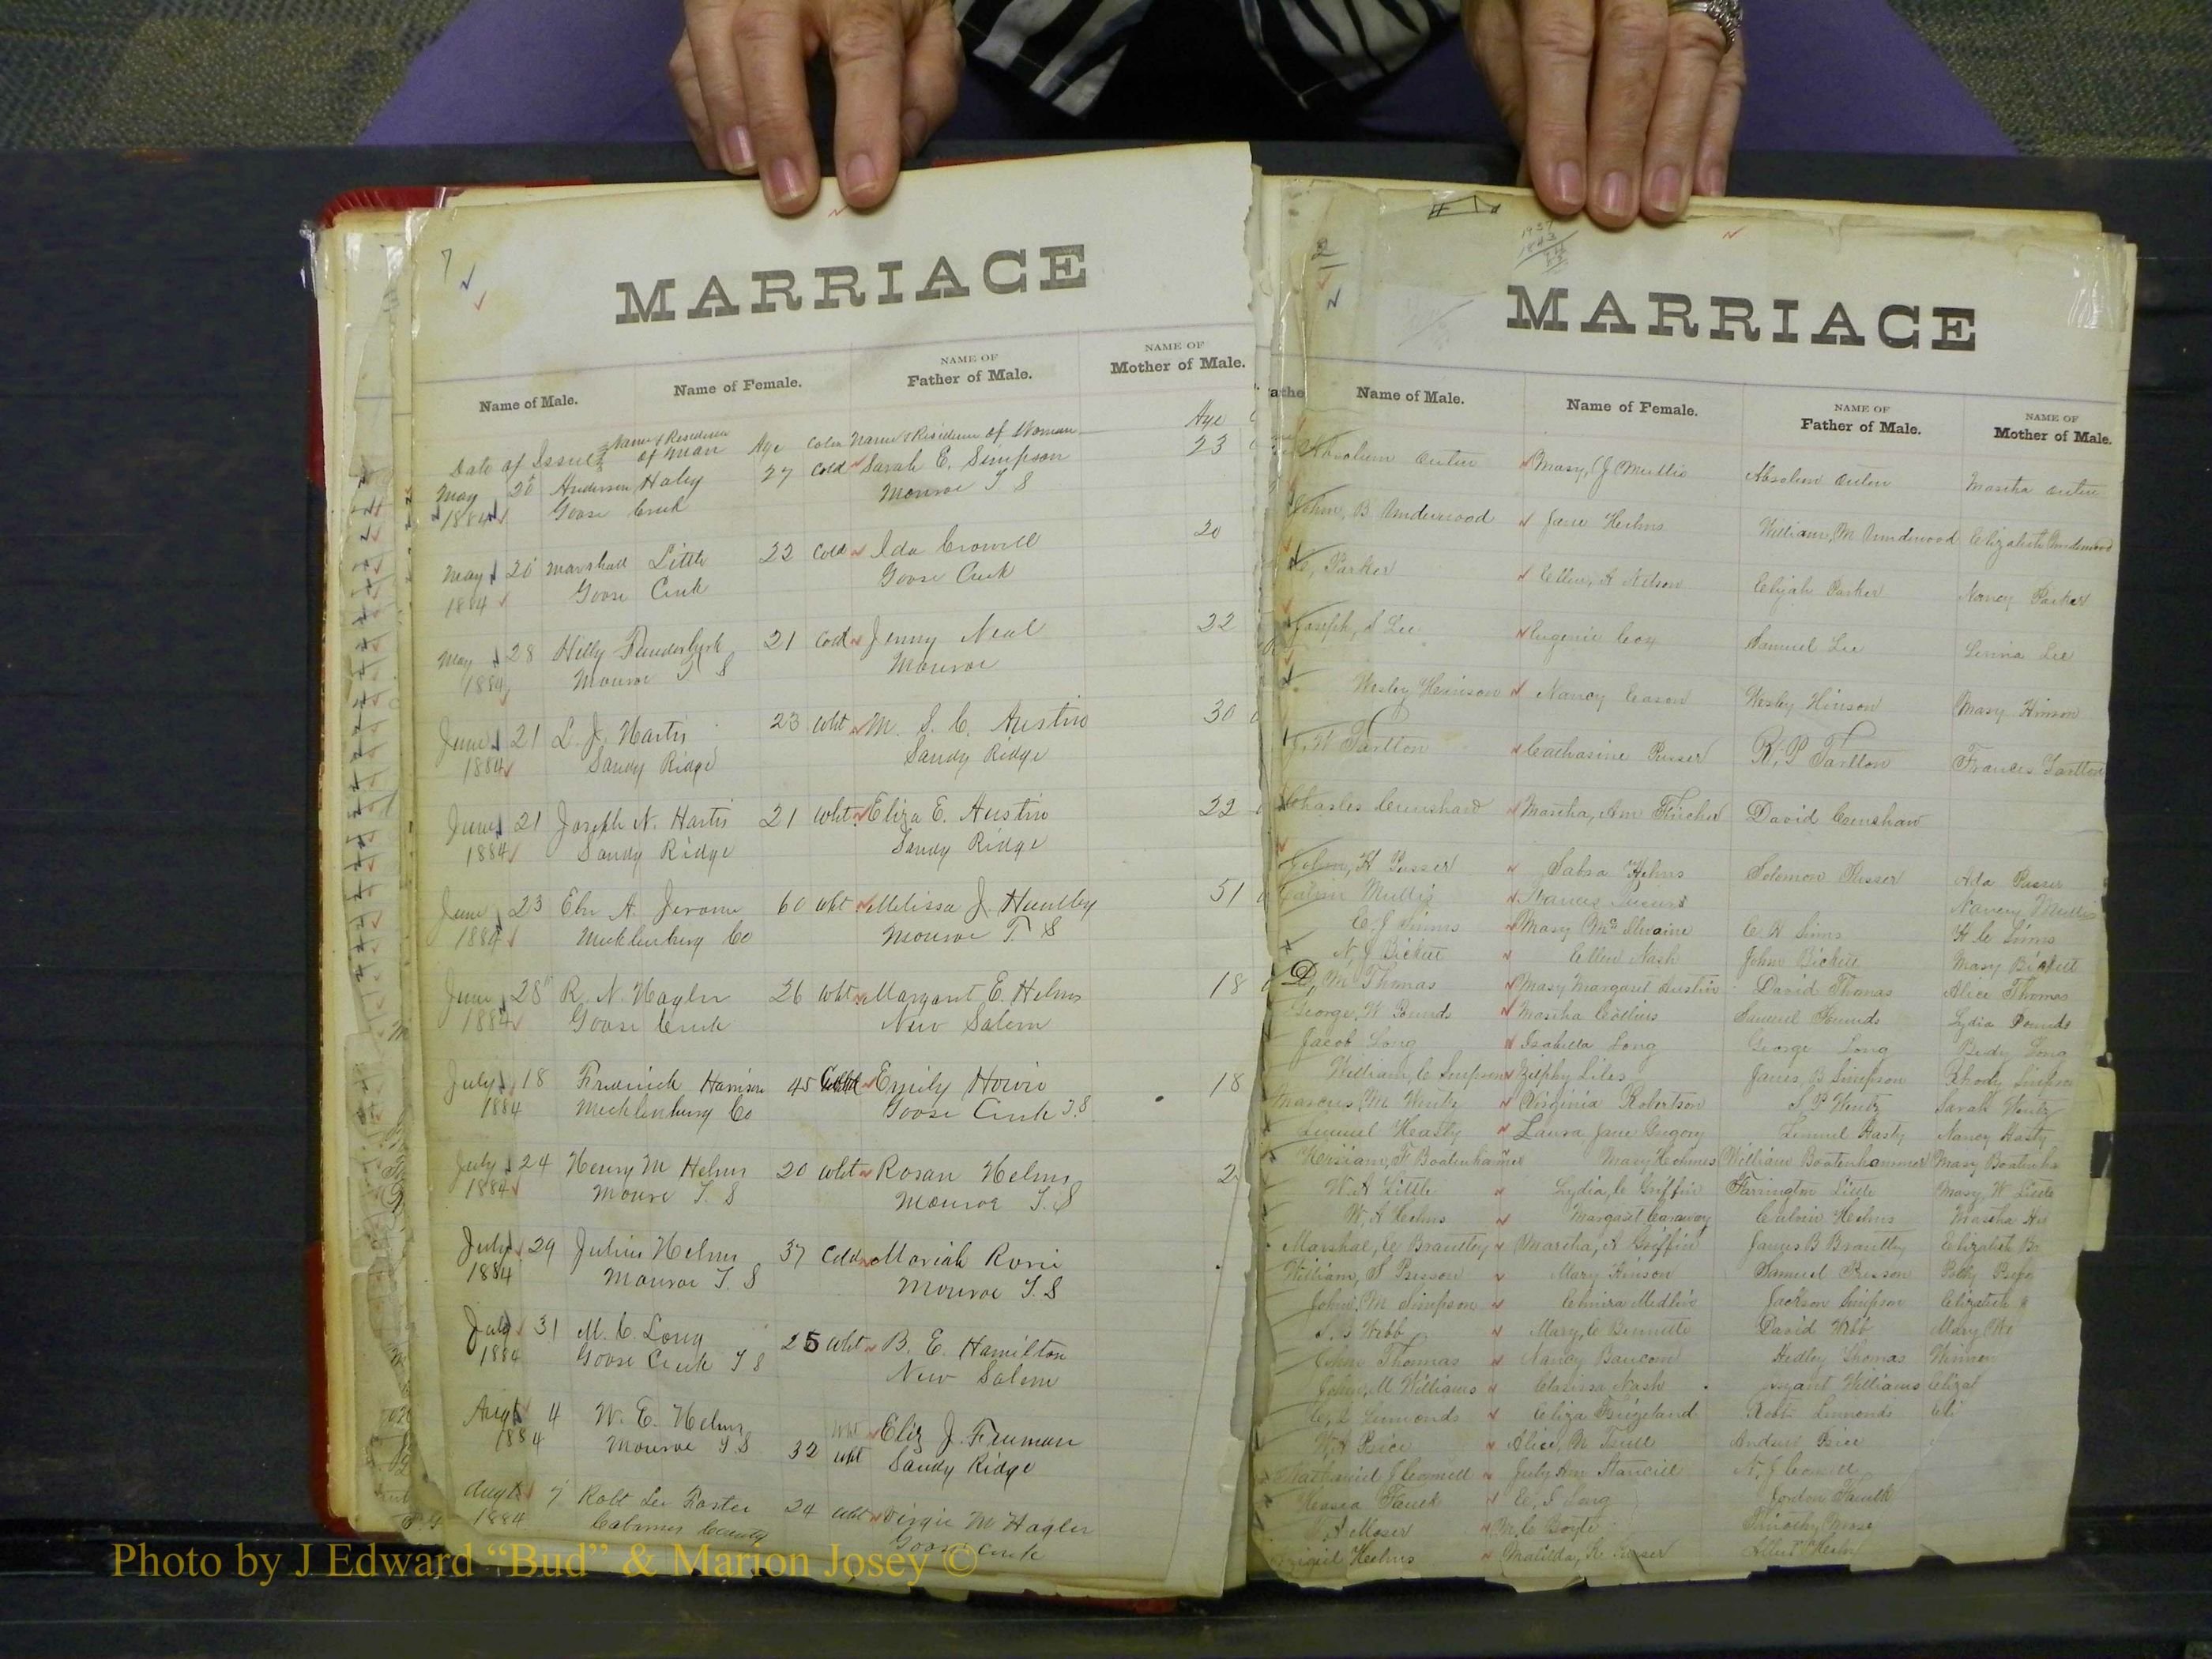 7
MARRIAGE
Name of Male.
Name of Female.
NAME OF
Father of Male.
NAME OF
Mother of Male.
Date of Issue Name & Residence of Man Age Color Name & Residence of Woman Age
May 20 Anderson Haley 27 Cold Sarah E. Simpson 23
1884 Goose Creek Monroe T S
May 20 Marshall Little 22 Cold Ida Crowell 20
1884 Goose Creek Goose Creek
May 28 Hilly Funderburk 21 Cold Jenny Neal 22
1884 Monroe T S Monroe
June 21 L. J. Hartis 23 Wht M. S. C. Austin 30
1884 Sandy Ridge Sandy Ridge
June 21 Joseph N. Hartis 21 Wht Eliza E. Austin 22
1884 Sandy Ridge Sandy Ridge
June 23 Ebr A. Jerome 60 Wht Melissa J. Huntley 51
1884 Mecklenburg Co Monroe T. S
June 28 R. N. Hagler 26 Wht Margaret E. Helms 18
1884 Goose Creek New Salem
July 18 Fredrick Harrison 45 Emily Howie 18
1884 Mecklenburg Co Goose Creek T.S.
July 24 Henry M Helms 20 Wht Rosan Helms 2
1884 Monroe T. S Monroe T. S
July 29 Julius Helms 37 Cold Moriah Rorie
1884 Monroe T. S Monroe T. S
July 31 M. C. Long 25 Wht B. E. Hamilton
1884 Goose Creek T S New Salem
Augt 4 W. E. Helms Wht Eliz J. Fruman
1884 Monroe T. S 32 Wht Sandy Ridge
Augt 7 Robt Lee Foster 24 Wht Virgie M Hagler
1884 Cabarrus County Goose Creek
2
MARRIAGE
Name of Male.
Name of Female.
NAME OF
Father of Male.
NAME OF
Mother of Male.
Absolum Outen Mary, J Mullis Absolum Outen Martha Outen
John, B Underwood Jane Helms William, M Underwood Elizabeth Underwood
Parker Ellen, A Nelson Elijah Parker Nancy Parker
Joseph, S Lee Eugenia Coy Samuel Lee Lerina Lee
Wesley Henison Nancy Eason Wesley Hinson Mary Hinson
J. W Tarlton Catharine Presser R. P Tarlton Frances Tarlton
Charles Crenshaw Martha, Ann Fincher David Crenshaw
John, H Presser Sabra Helms Solomon Presser Ada Presser
Calvin Mullis Nancy Mullis
C. J Simms Mary McIlwaine C. H Simms H C Simms
N, J Bickett Ellen Nash John Bickett Mary Bickett
D, M Thomas Mary Margaret Austin David Thomas Alice Thomas
George, W Pounds Martha Collins Samuel Pounds Lydia Pounds
Jacob Long Isabella Long George Long Long
William, C Simpson Zilphy Liles James, B Simpson Rhody Simpson
Marcus, M Wentz Virginia Robertson S P Wentz Sarah Wentz
Lemuel Heasty Laura Jane Gregory Lemuel Hasty Nancy Hasty
Boatenhamer Mary Holmes William Boatenhammer Mary Boatenha
W. A Little Lydia, C Griffin Farrington Little Mary, W Little
W, A Helms Margaret Caraway Calvin Helms Martha He
Marshal, C Brantley Martha, A Griffin James B Brantley Elizabeth Br
William, S Presson Mary Hinson Samuel Presson Polly Press
John, M Simpson Elmira Medlin Jackson Simpson Elizabeth
Webb Mary, C Bennette David Webb Mary We
John Thomas Nancy Baucom Hedley Thomas Winner
John, M Williams Clarissa Nash Williams Elizat
C, L Simonds Eliza Bridgeland Robt Simonds Eli
W, A Price Alice, N Tsull Andrew Price
Nathaniel J Cornell July Ann Stancill N. J Cornell
Hosea Faulk E, J Long Jordon Faulk
W, A Moser M, C Boyte Timothy Mose
Helms Matilda, R Presser Helm
Photo by J Edward “Bud” & Marion Josey ©